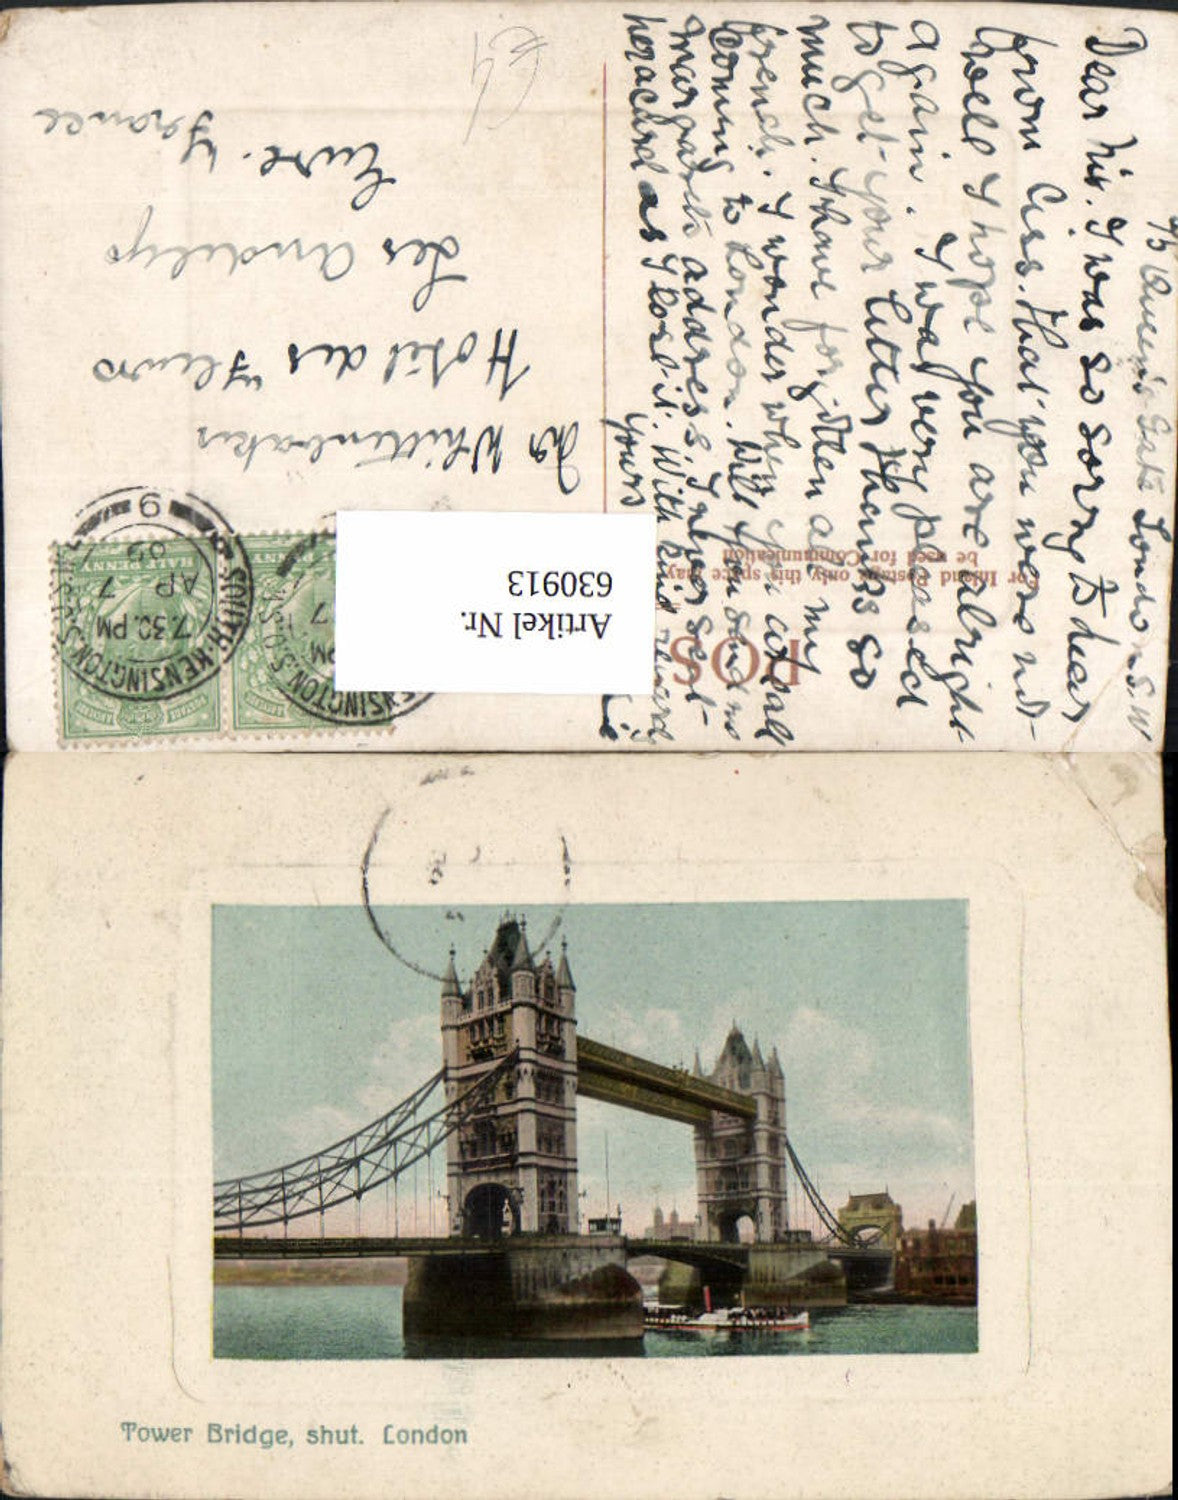 45 Queen's Gate London S.W
Dear Mr. I was so sorry to hear
from Ciss. that you were not
well I hope you are allright
again. I was very pleased
to get your letter thanks so
much. I have forgotten all my
french. I wonder when you are
coming to London. Will you send me
margarets address. I never sent
her a card as I lost it. With kind
yours
POS
For Inland Postage only this space may
be used for Communication
Hotel des Fleurs
Les Andelys
Eure. France
SOUTH KENSINGTON S.O. S.W.
7.30 PM
AP 7
09
9
HALF PENNY
POSTAGE REVENUE
Artikel Nr.
630913
Tower Bridge, shut. London